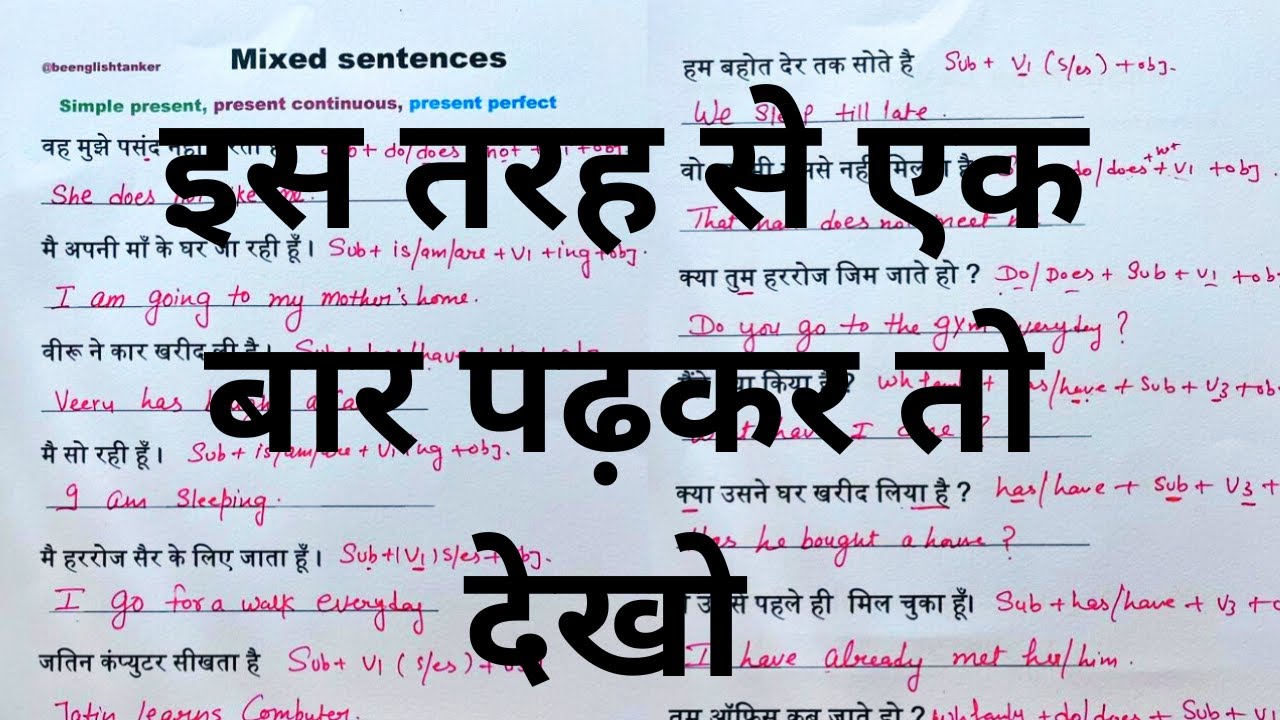 @beenglishtanker
Mixed sentences
Simple present, present continuous, present perfect
वह मुझे पसंद
She does
मै अपनी माँ के घर जा रही हूँ। Sub + is/am/are + V1 + ing + obj.
I am going to my mother's home.
वीरू ने कार खरीद ली है।
Veeru has
मै सो रही हूँ। Sub + is/am/are + V1 + ing + obj.
I am sleeping.
मै हररोज सैर के लिए जाता हूँ। Sub + (V1) s/es + obj.
I go for a walk everyday
जतिन कंप्युटर सीखता है Sub + V1 (s/es) +
Jatin learns Computer.
हम बहोत देर तक सोते है Sub + V1 (s/es) + obj.
We sleep till late.
वो नही do/does + V1 + obj.
That does meet
क्या तुम हररोज जिम जाते हो ? Do/Does + Sub + V1 + ob
Do you go to the gym everyday?
किया have + Sub + V3 + ob
I
क्या उसने घर खरीद लिया है ? has/have + Sub + V3 +
he bought a house?
पहले ही मिल चुका हूँ। Sub + has/have + V3 +
I have already met her/him.
तुम ऑफिस कब जाते हो ? + do/does + Sub + V1
इस तरह से एक
बार पढ़कर तो
देखो